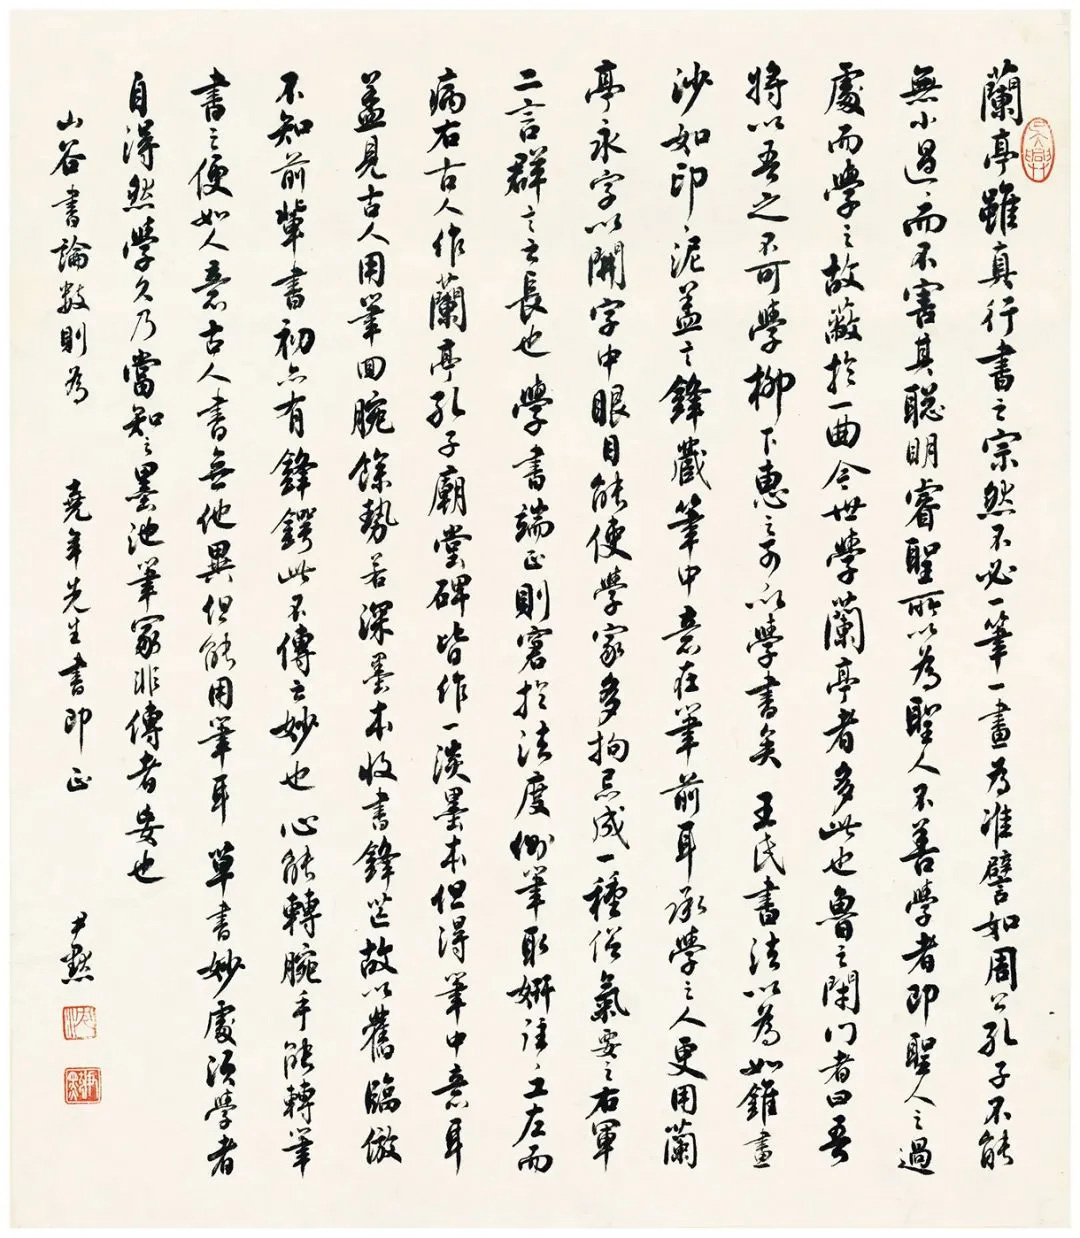 蘭亭雖真行書之宗然不必一筆一畫為准譬如周公孔子不能
無小過過而不害其聰明睿聖所以為聖人不善學者即聖人之過
處而學之故蔽於一曲今世學蘭亭者多此也魯之閉門者曰吾
將以吾之不可學柳下惠之可以學書矣 王氏書法以為如錐畫
沙如印印泥蓋言鋒藏筆中意在筆前耳承學之人更用蘭
亭永字以開字中眼目能使學家多拘忌成一種俗氣要之右軍
二言群言之長也 學書端正則窘於法度側筆取妍往往工左而
病右古人作蘭亭孔子廟堂碑皆作一淡墨本但得筆中意耳
蓋見古人用筆回腕餘勢若深墨本收書鋒芒故以舊臨倣
不知前輩書初亦有鋒鍔此不傳之妙也 心能轉腕手能轉筆
書之便如人意古人書無他異但能用筆耳 草書妙處須學者
自得然學久乃當知之墨池筆冢非傳者妄也
山谷書論數則為 堯年先生書即正 尹默